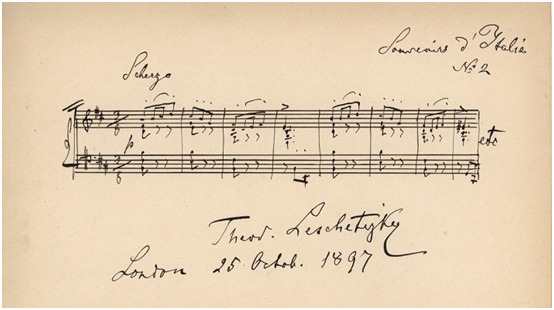 Souvenirs d'Italie
No. 2
Scherzo
p
etc
Theod. Leschetizky
London 25 Octob. 1897